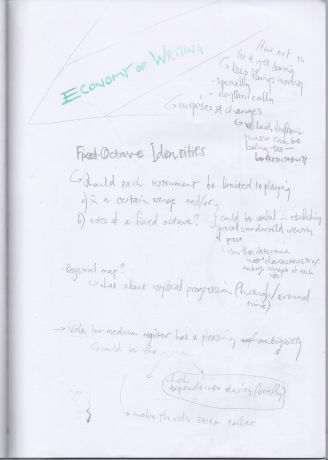 ECONOMY OF WRITING
How not to
let it get boring
keep things moving
- spatially
- rhythmically
surprises & changes
music can be
boring
Fixed-Octave Identities
Should each instrument be limited to playing
a) in a certain range and/or
b) notes of a fixed octave?
could be useful in establishing
overall sound world identity
of piece
characteristic/
ranges of each
- Registral map?
what about registral progression (through/around
time)
→ Viola low-medium register has a pleasing ambiguity
could be the
(briefly)
make the viola seem earlier